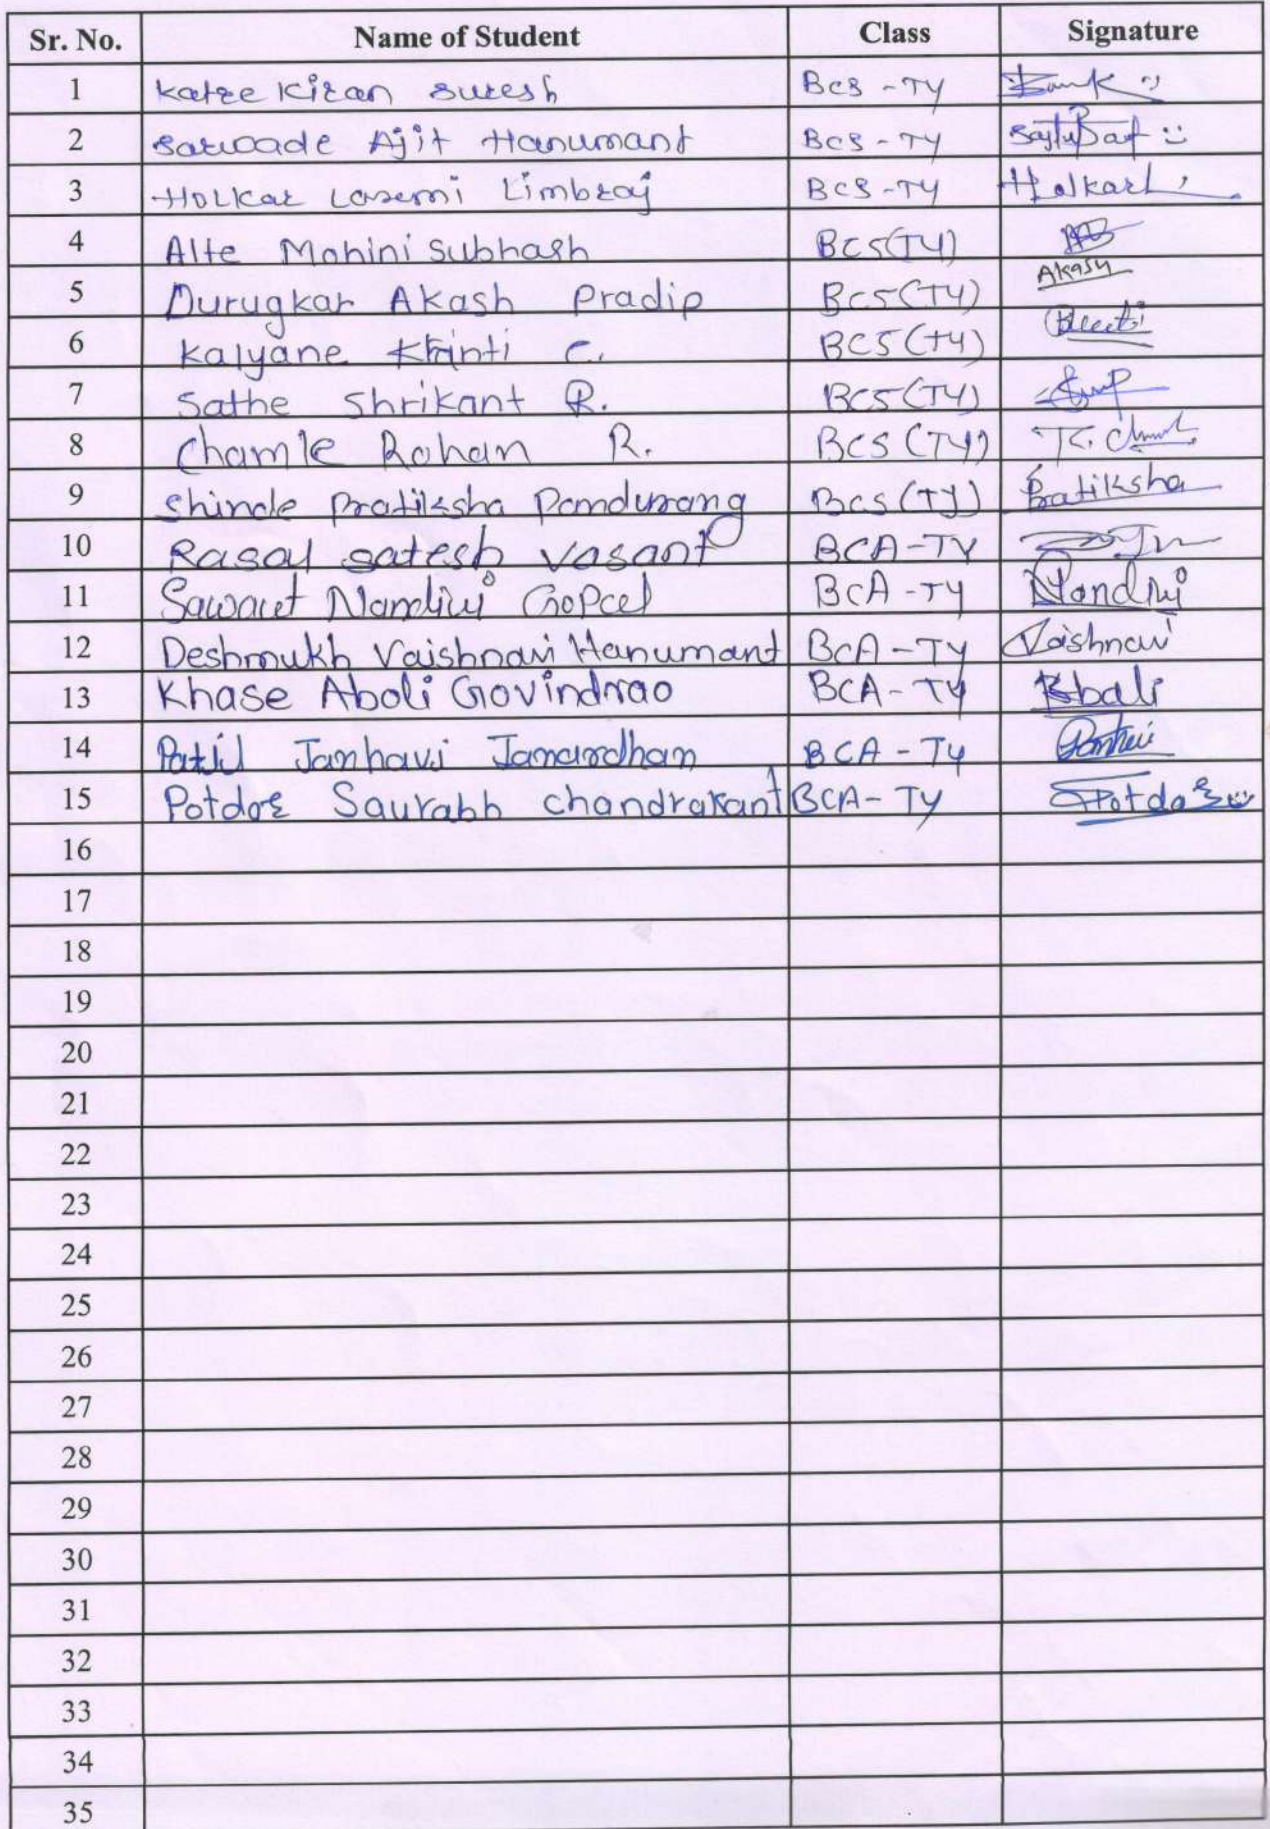 Sr. No. Name of Student Class Signature
1 Katre Kiran Suresh BCS - TY
2 Sarwade Ajit Hanumant BCS - TY
3 Holkar Laxmi Limbraj BCS - TY Holkar
4 Alte Mohini Subhash BCS(TY)
5 Durugkar Akash Pradip BCS(TY) Akash
6 Kalyane C. BCS(TY)
7 Sathe Shrikant R. BCS(TY)
8 Chamle Rohan R. BCS (TY)
9 Shinde Pratiksha Pandurang BCS (TY) Pratiksha
10 Rasal Satesh Vasant BCA - TY
11 Sawant Nandini Gopal BCA - TY Nandini
12 Deshmukh Vaishnavi Hanumant BCA - TY Vaishnavi
13 Khase Aboli Govindrao BCA - TY
14 Patil Janhavi Janardhan BCA - TY
15 Potdar Saurabh chandrakant BCA - TY Potdar
16
17
18
19
20
21
22
23
24
25
26
27
28
29
30
31
32
33
34
35